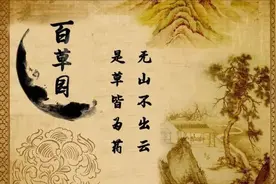 百草目
无山不出云
是草皆为药